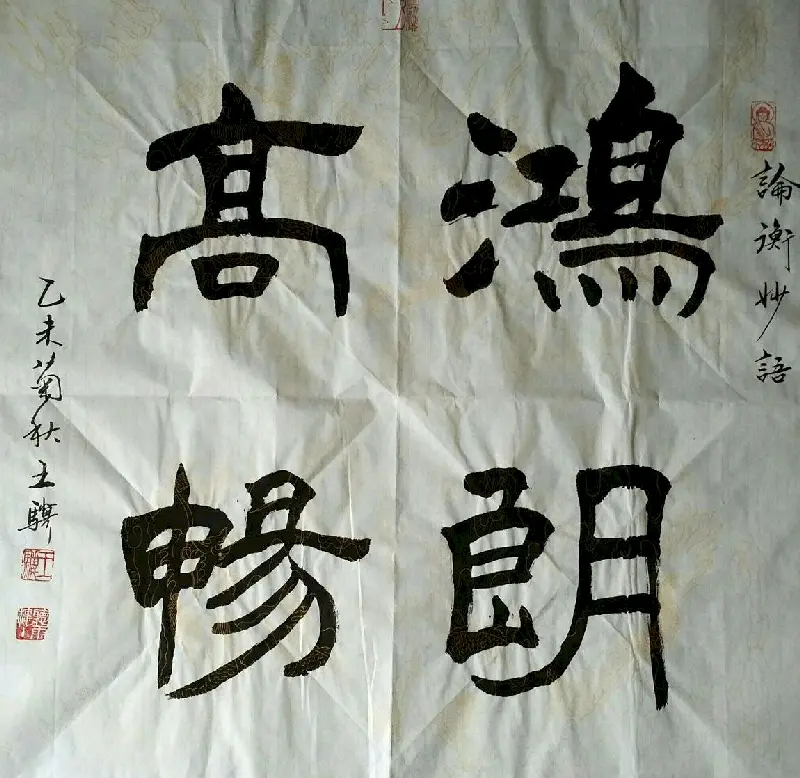 論衡妙語
鴻朗
高暢
乙未菊秋王騂